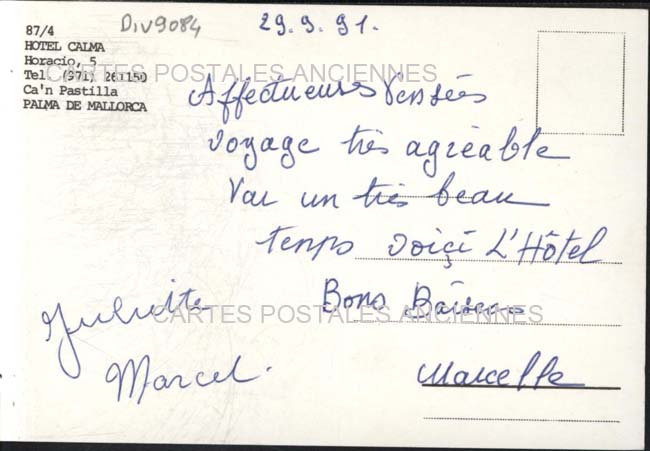 Div9084
29.9.91.
87/4
HOTEL CALMA
Horacio, 5
Tel. (971) 261150
Ca'n Pastilla
PALMA DE MALLORCA
CARTES POSTALES ANCIENNES
Affectueuses Pensées
voyage très agréable
Par un très beau
temps voiçi L'Hôtel
Bons Baisers
CARTES POSTALES ANCIENNES
Juliette
Marcel.
Marcelle